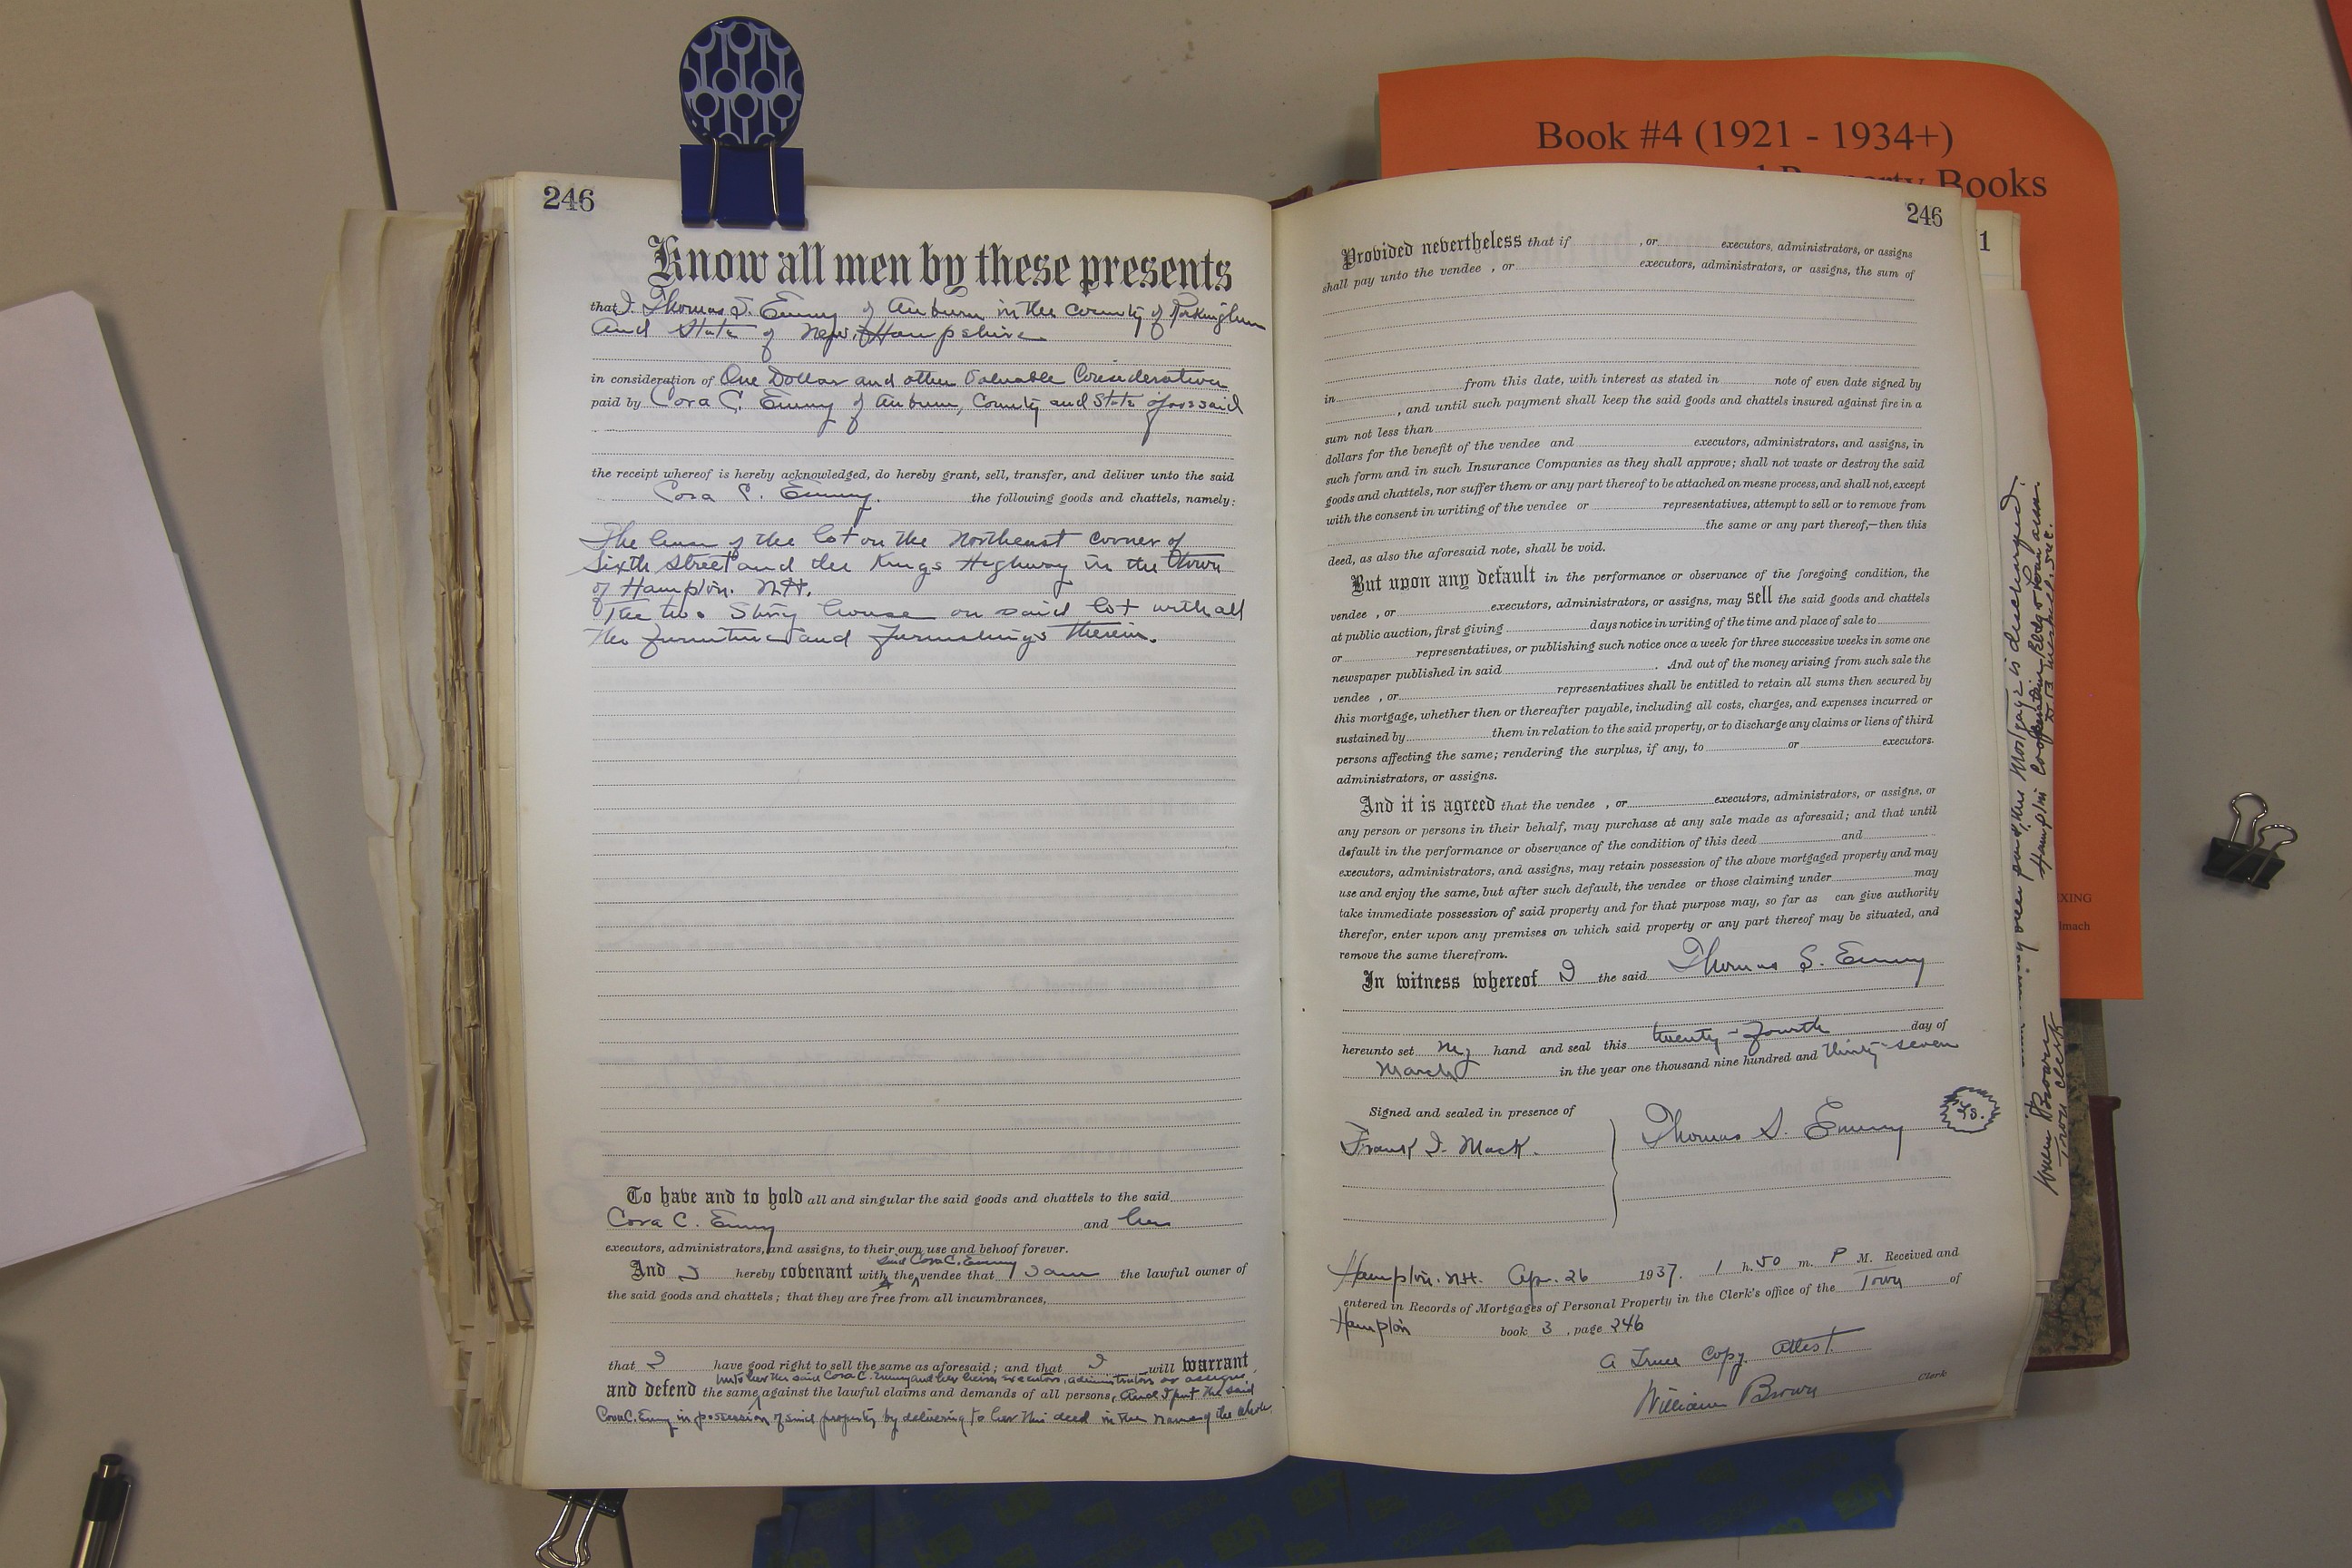 Book #4 (1921 - 1934+)
Property Books
246
Know all men by these presents
that I, Thomas S. Emmy of Auburn in the County of Rockingham
and State of New Hampshire
in consideration of One Dollar and other Valuable Consideration
paid by Cora C. Emmy of Auburn, County and State aforesaid
the receipt whereof is hereby acknowledged, do hereby grant, sell, transfer, and deliver unto the said
Cora C. Emmy. the following goods and chattels, namely:
The lease of the lot on the Northeast corner of
Sixth Street and the Kings Highway in the Town
of Hampton. N.H.
The two Story house on said lot with all
the furniture and furnishings therein.
To have and to hold all and singular the said goods and chattels to the said
Cora C. Emmy and her
executors, administrators, and assigns, to their own use and behoof forever.
said Cora C. Emmy
And I hereby covenant with the vendee that I am the lawful owner of
the said goods and chattels; that they are free from all incumbrances,
that I have good right to sell the same as aforesaid; and that I will warrant
unto her the said Cora C. Emmy and her heirs, executors, administrators or assigns
and defend the same against the lawful claims and demands of all persons, And I put the said
Cora C. Emmy in possession of said property by delivering to her this deed in the name of the whole.
246
1
Provided nevertheless that if , or executors, administrators, or assigns
shall pay unto the vendee , or executors, administrators, or assigns, the sum of
from this date, with interest as stated in note of even date signed by
in , and until such payment shall keep the said goods and chattels insured against fire in a
sum not less than
dollars for the benefit of the vendee and executors, administrators, and assigns, in
such form and in such Insurance Companies as they shall approve; shall not waste or destroy the said
goods and chattels, nor suffer them or any part thereof to be attached on mesne process, and shall not, except
with the consent in writing of the vendee or representatives, attempt to sell or to remove from
the same or any part thereof,—then this
deed, as also the aforesaid note, shall be void.
But upon any default in the performance or observance of the foregoing condition, the
vendee , or executors, administrators, or assigns, may sell the said goods and chattels
at public auction, first giving days notice in writing of the time and place of sale to
or representatives, or publishing such notice once a week for three successive weeks in some one
newspaper published in said . And out of the money arising from such sale the
vendee , or representatives shall be entitled to retain all sums then secured by
this mortgage, whether then or thereafter payable, including all costs, charges, and expenses incurred or
sustained by them in relation to the said property, or to discharge any claims or liens of third
persons affecting the same; rendering the surplus, if any, to or executors.
administrators, or assigns.
And it is agreed that the vendee , or executors, administrators, or assigns, or
any person or persons in their behalf, may purchase at any sale made as aforesaid; and that until
default in the performance or observance of the condition of this deed and
executors, administrators, and assigns, may retain possession of the above mortgaged property and may
use and enjoy the same, but after such default, the vendee or those claiming under may
take immediate possession of said property and for that purpose may, so far as can give authority
therefor, enter upon any premises on which said property or any part thereof may be situated, and
remove the same therefrom.
In witness whereof I the said Thomas S. Emmy
hereunto set my hand and seal this twenty-fourth day of
March in the year one thousand nine hundred and thirty-seven
Signed and sealed in presence of
Frank I. Mack. Thomas S. Emmy L.S.
Hampton. N.H. Apr. 26 1937. 1 h. 50 m. P M. Received and
entered in Records of Mortgages of Personal Property in the Clerk's office of the Town of
Hampton book 3 , page 246
A True Copy Attest.
William Brown Clerk
this Mortgage is discharged.
Hampton Cooperative Bldg & Loan Assn.
William Brown
Town Clerk